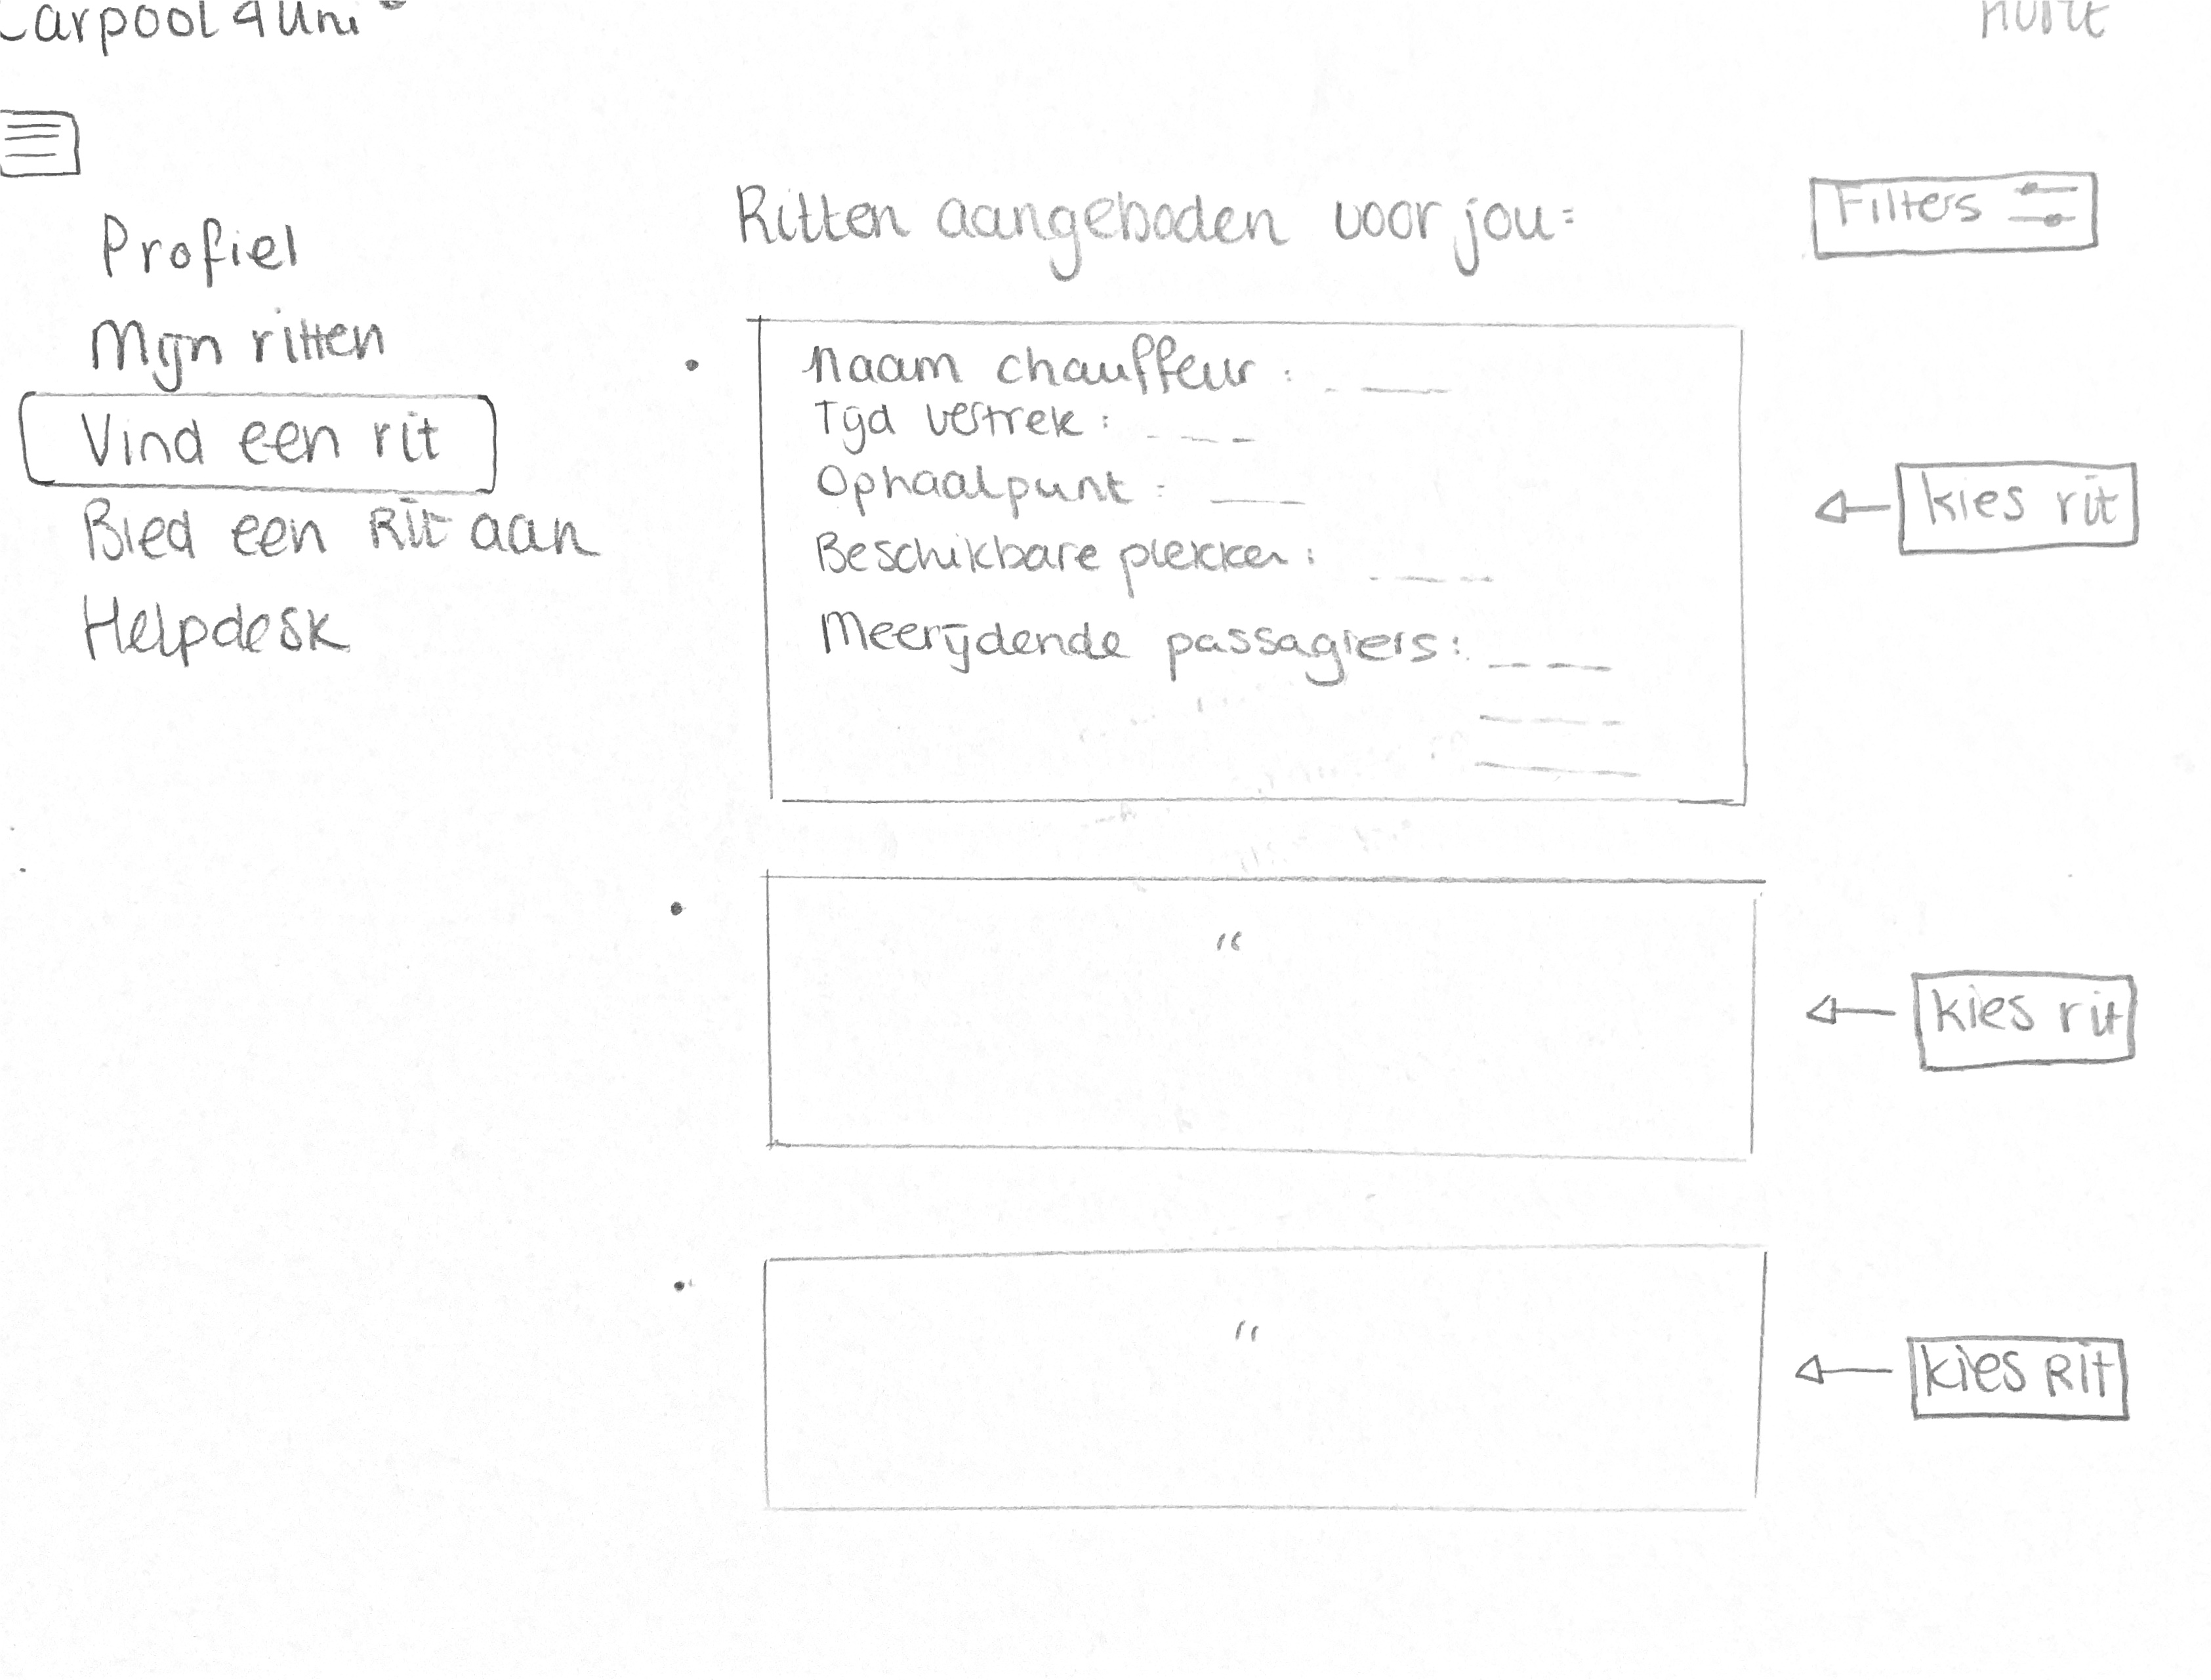 Carpool4uni
Profiel
Mijn ritten
Vind een rit
Bied een Rit aan
Helpdesk
Ritten aangeboden voor jou:
Filters
naam chauffeur :
Tijd vertrek :
Ophaalpunt :
Beschikbare plekken :
Meerijdende passagiers :
kies rit
"
kies rit
"
kies Rit